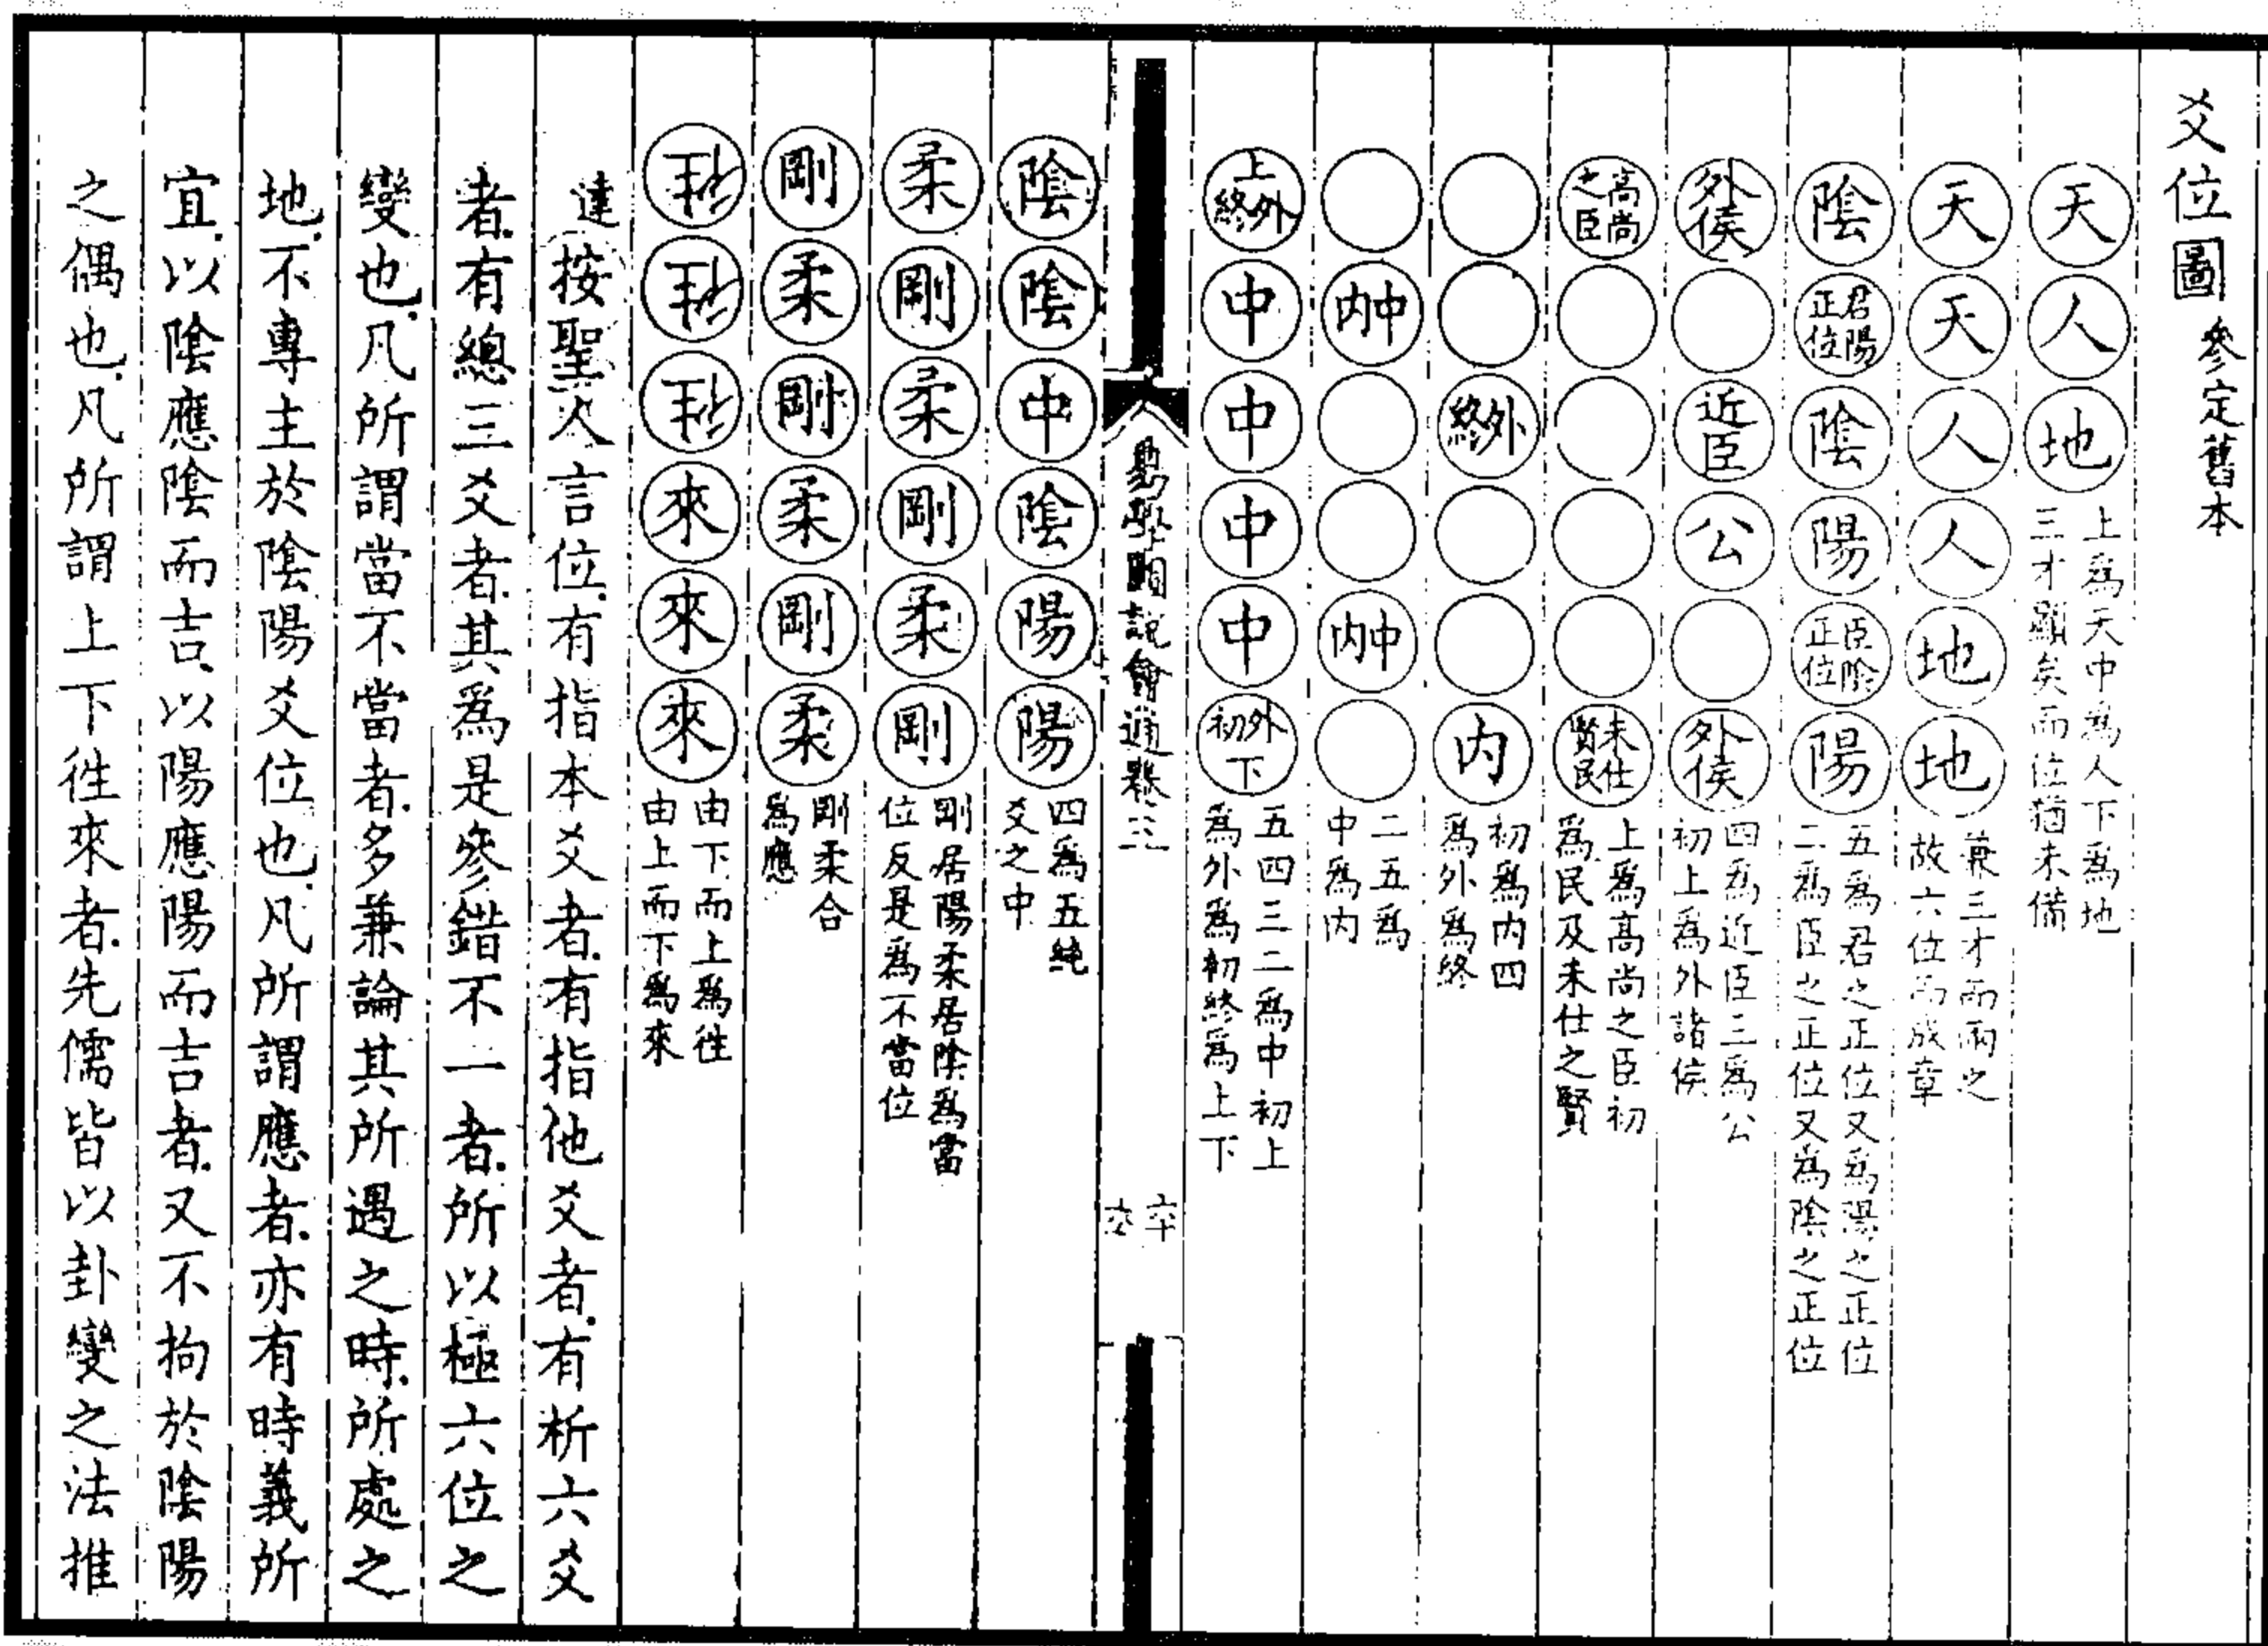 爻位圖 參定舊本
天 人 地 上爲天中爲人下爲地
三才顯矣而位猶未備
天 天 人 人 地 地 兼三才而兩之
故六位而成章
陰 君陽正位 陰 陽 臣陰正位 陽 五爲君之正位又爲陽之正位
二爲臣之正位又爲陰之正位
外侯 近臣 公 外侯 四爲近臣三爲公
初上爲外諸侯
高尚之臣 未仕賢民 上爲高尚之臣初
爲民及未仕之賢
外終 內 初爲內四
爲外爲終
中內 中內 二五爲
中爲內
上外終 中 中 中 中 外初下 五四三二爲中初上
爲外爲初終爲上下
易學圖說會通卷三
陰 陰 中 陰 陽 陽 四爲五純
爻之中
柔 剛 柔 剛 柔 剛 剛居陽柔居陰爲當
位反是爲不當位
剛 柔 剛 柔 剛 柔 剛柔合
爲應
來 來 來 由下而上爲徃
由上而下爲來
達按聖人言位有指本爻者有指他爻者有析六爻
者有總三爻者其爲是參錯不一者所以極六位之
變也凡所謂當不當者多兼論其所遇之時所處之
地不專主於陰陽爻位也凡所謂應者亦有時義所
宜以陰應陰而吉以陽應陽而吉者又不拘於陰陽
之偶也凡所謂上下徃來者先儒皆以卦變之法推